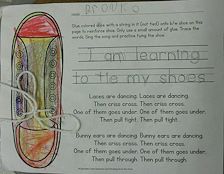 Glue colored dots with a string in it (not tied) onto b/w shoe on this
page to reinforce shoe. Only use a small amount of glue. Trace the
words. Sing the song and practice tying the shoe.
I am learning
to tie my shoes
Laces are dancing. Laces are dancing.
Then criss cross. Then criss cross.
One of them goes under. One of them goes under.
Then pull tight. Then pull tight.
Bunny ears are dancing. Bunny ears are dancing.
Then criss cross. Then criss cross.
One of them goes under. One of them goes under.
Then pull through. Then pull through.